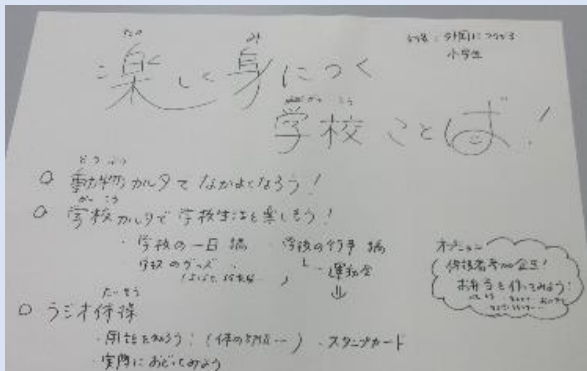 対象：外国につながる
小学生
たの
み
楽しく身につく
がっこう
学校ことば！
どうぶつ
○ 動物カルタでなかよくなろう！
がっこう
○ 学校カルタで学校生活を楽しもう！
・学校の一日編 ・学校の行事編
・学校のグッズ
運動会
たいそう
○ ラジオ体操
・用語を知ろう！（体の部位…） ・スタンプカード
・実際におどってみよう
オプション
保護者参加企画！
お弁当を作ってみよう！